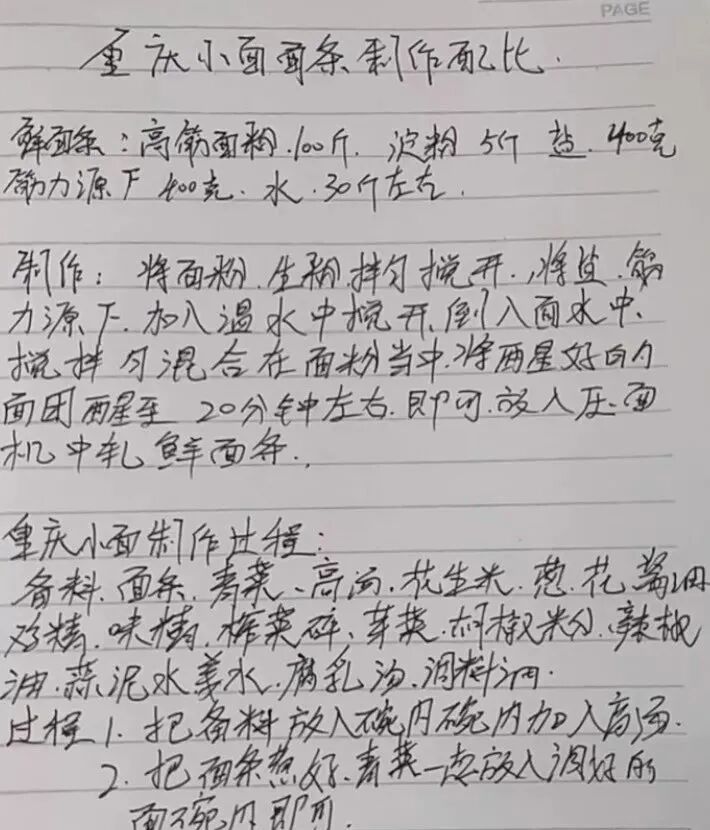 PAGE
重庆小面面条制作配比.
鲜面条:高筋面粉.100斤.淀粉5斤 盐.400克
筋力源F 400克.水.30斤左右.
制作:将面粉.生粉.拌匀搅开.,将盐.筋
力源F.加入温水中搅开.倒入面水中.
搅拌匀混合在面粉当中.将醒好的
面团醒至20分钟左右.即可.放入压面
机中轧鲜面条.
重庆小面制作过程:
备料.面条.青菜、高汤.花生米.葱.花 酱油
鸡精.味精.榨菜碎、芽菜.胡椒粉.辣椒
油.蒜泥水姜水.腐乳汤.调料油.
过程1.把备料放入碗内碗内加入高汤.
2.把面条煮好.青菜一起放入调好的
面碗内即可.